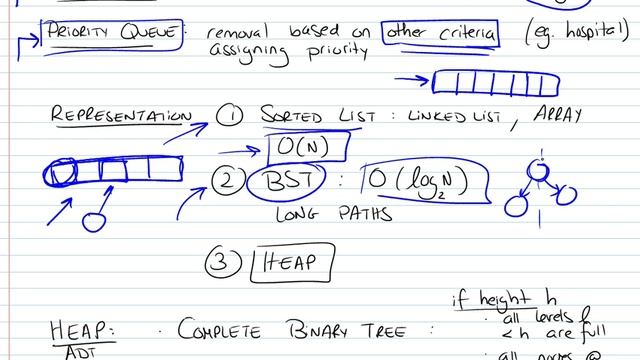 PRIORITY QUEUE: removal based on other criteria (eg. hospital)
assigning priority
REPRESENTATION ① SORTED LIST : LINKED LIST, ARRAY
O(N)
② BST : O(log₂N)
LONG PATHS
③ HEAP
if height h
HEAP: · COMPLETE BINARY TREE : · all levels
ADT < h are full